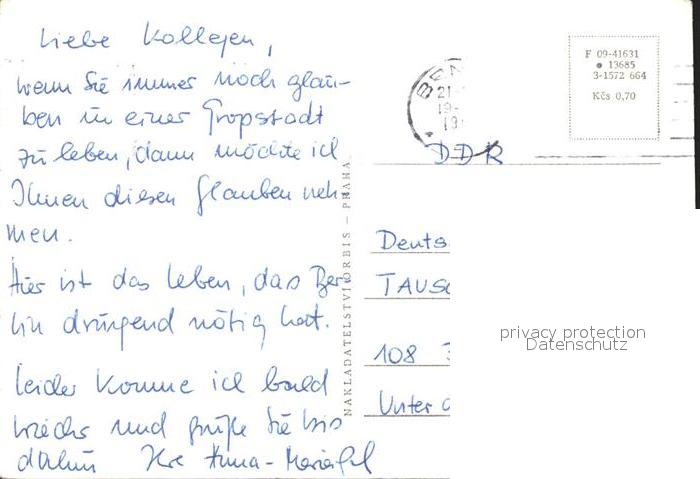 Liebe Kollegen,
wenn Sie immer noch glau-
ben in einer Großstadt
zu leben, dann möchte ich
Ihnen diesen Glauben neh-
men.
Hier ist das Leben, das Ber-
lin dringend nötig hat.
Leider komme ich bald
und grüße Sie bis
dahin Ihre Anna-
F 09-41631
13685
3-1572 664
Kčs 0,70
21
19
DDR
Deuts
TAUSC
108
Unter
NAKLADATELSTVÍ ORBIS – PRAHA
privacy protection
Datenschutz